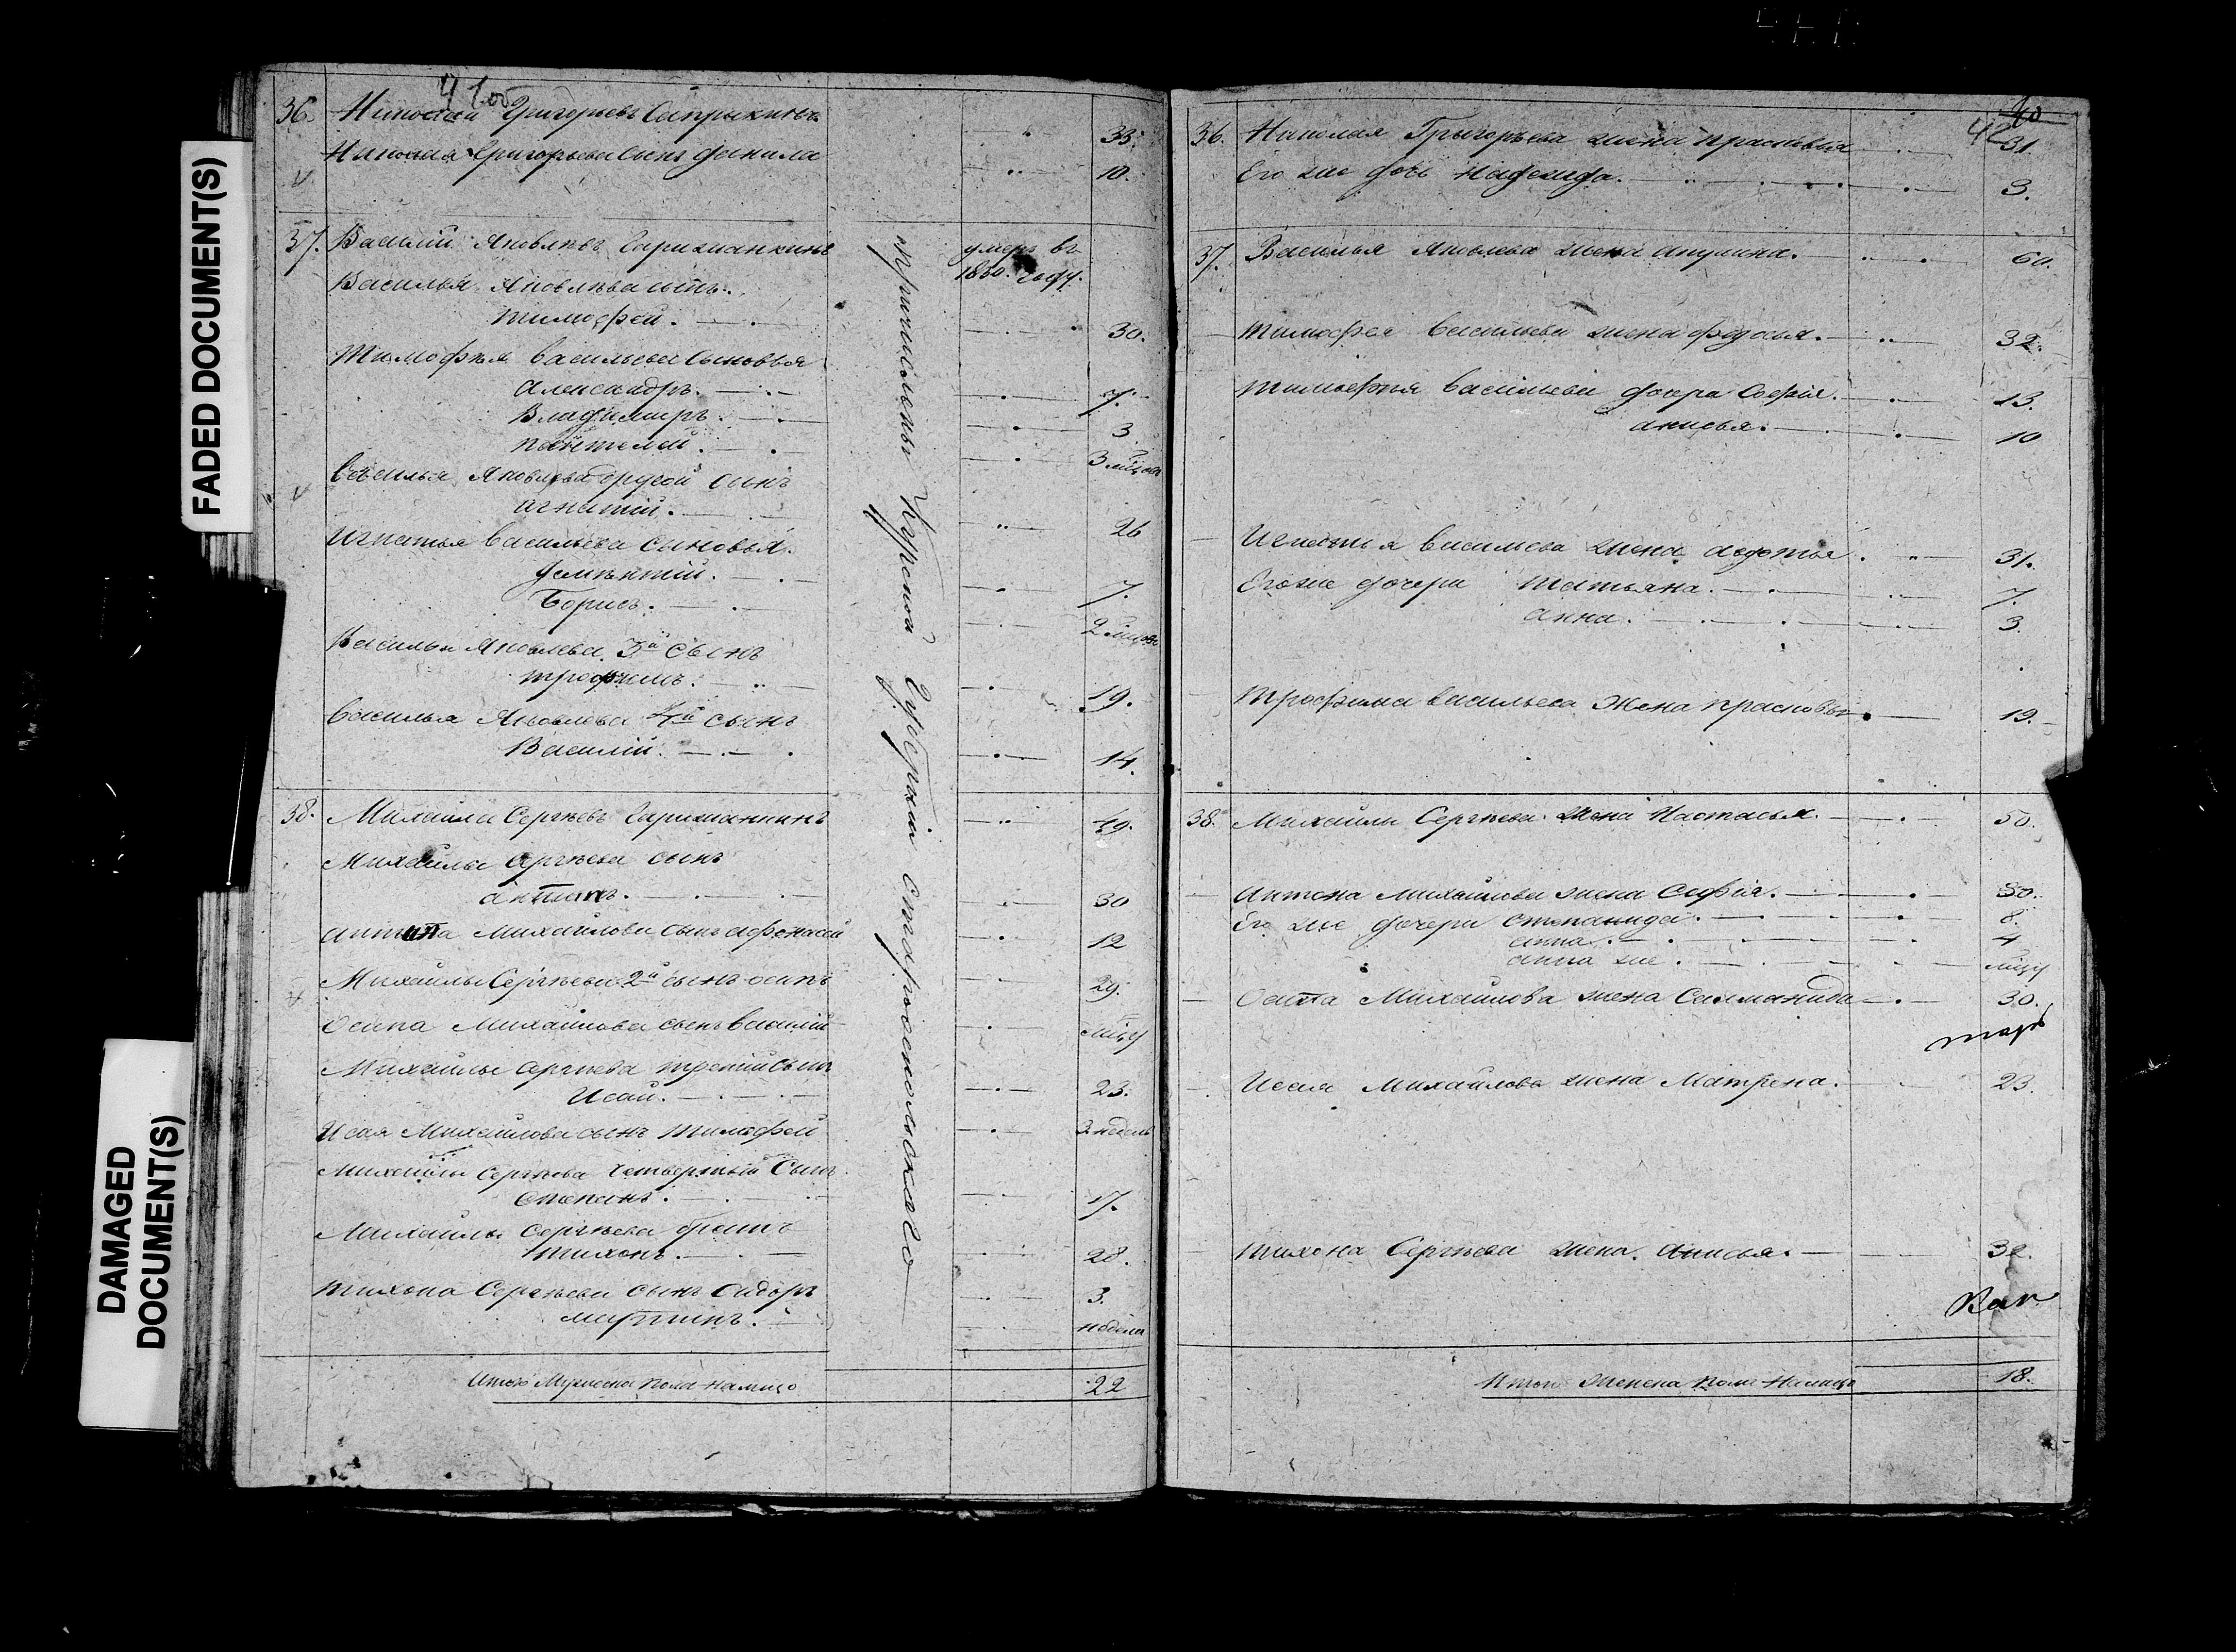 FADED DOCUMENT(S)
DAMAGED
DOCUMENT(S)
41об
36. Николай Григорьевъ Сапрыкинъ 33.
Николая Григорьева сынъ Данила 10.
37. Василій Яковлевъ умеръ въ
1850. году.
Василья Яковлева сынъ.
Тимофей. 30.
Тимофея Васильева сыновья
Александръ. 7.
Владимиръ. 3
Пантелей. 3 мѣсяца
Василья Яковлева другой сынъ
Игнатій. 26
Игнатья Васильева сыновья.
Дементій. 7.
Борисъ. 2 мѣсяца
Василья Яковлева 3й сынъ
Трофимъ. 19.
Василья Яковлева 4й сынъ
Василій. 14.
38. Михайла Сергѣевъ 49.
Михайлы Сергѣева сынъ
Антонъ. 30
Антона Михайлова сынъ Афонасій 12
Михайлы Сергѣева 2й сынъ Осипъ 29.
Осипа Михайлова сынъ Василій мѣсяцъ
Михайлы Сергѣева третій сынъ
Исай. 23.
Исая Михайлова сынъ Тимофей 3 недель
Михайлы Сергѣева четвертый сынъ
Степанъ. 17.
Михайлы Сергѣева братъ
Тихонъ. 28.
Тихона Сергѣева сынъ Сидоръ 3.
Мартинъ. неделя
Итого Мужеска пола налицо 22
причислены
40
42
36. Николая Григорьева жена Прасковья 31.
Его же дочь 3.
37. Василья Яковлева жена Акулина. 60.
Тимофея Васильева жена Федосья. 32.
Тимофея Васильева дочери Софія. 13.
Анисья. 10
Игнатья Васильева жена Авдотья. 31.
Его же дочери Татьяна. 7.
Анна. 3.
Трофима Васильева жена Прасковья. 19.
38. Михайлы Сергѣева жена Настасья. 50.
Антона Михайлова жена Софія. 30.
Его же дочери Степанида. 8.
Анна. 4
Анна же. мѣсяцъ
Осипа Михайлова жена 30.
Исая Михайлова жена Матрена. 23.
Тихона Сергѣева жена Анисья. 32.
Итого Женска пола налицо 18.